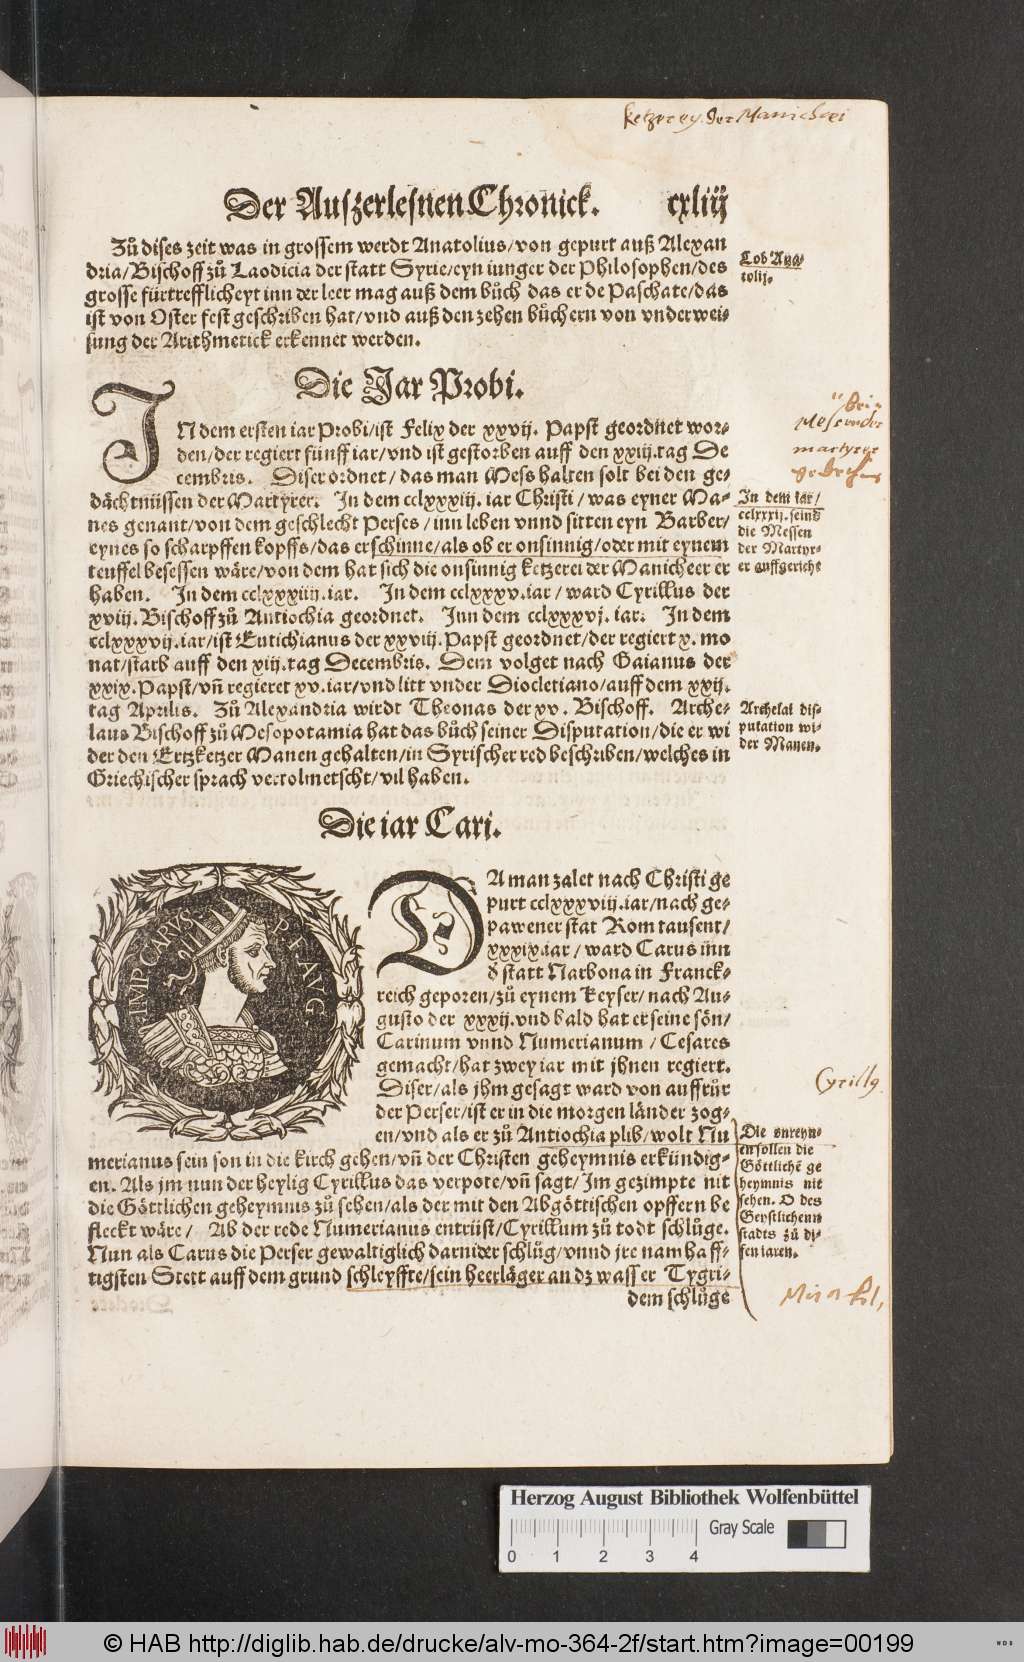 ketzerey der Manichei
Der Auszerlesnen Chronick. cxliij
Zů dises zeit was in grossem werdt Anatolius/von gepurt auß Alexan
dria/Bischoff zů Laodicia der statt Syrie/eyn iunger der Philosophen/des
grosse fürtrefflicheyt inn der leer mag auß dem bůch das er de Paschate/das
ist von Oster fest geschriben hat/vnd auß den zehen bůchern von vnderwei-
sung der Arithmetick erkennet werden.
Lob Ana-
tolij.
Die Jar Probi.
IN dem ersten iar Probi/ist Felix der xxvij. Papst geordnet wor-
den/der regiert fünff iar/vnd ist gestorben auff den xxiij.tag De
cembris. Diser ordnet/das man Mess halten solt bei den ge-
dächtnüssen der Martyrer. In dem cclxxxiij. iar Christi/was eyner Ma-
nes genant/von dem geschlecht Perses/inn leben vnnd sitten eyn Barber/
eynes so scharpffen kopffs/das er schinne/als ob er onsinnig/oder mit eynem
teuffel besessen wäre/von dem hat sich die onsinnig ketzerei der Manicheer er
haben. In dem cclxxxiiij.iar. In dem cclxxxv.iar/ward Cyrillus der
xviij. Bischoff zů Antiochia geordnet. Inn dem cclxxxvj. iar. In dem
cclxxxvij.iar/ist Eutichianus der xxviij.Papst geordnet/der regiert x. mo
nat/starb auff den xiij.tag Decembris. Dem volget nach Gaianus der
xxix.Papst/vñ regieret xv.iar/vnd litt vnder Diocletiano/auff dem xxij.
tag Aprilis. Zů Alexandria wirdt Theonas der xv. Bischoff. Arche-
laus Bischoff zů Mesopotamia hat das bůch seiner Disputation/die er wi
der den Ertzketzer Manen gehalten/in Syrischer red beschriben/welches in
Griechischer sprach vertolmetscht/vil haben.
martyrer
In dem iar/
cclxxxij.seind
die Messen
der Martyr-
er auffgericht
Archelai dis-
putation wi-
der Manen.
Die iar Cari.
IMP CARVS P F AVG
DA man zalet nach Christi ge
purt cclxxxviij.iar/nach ge-
pawener stat Rom tausent/
xxxix.iar/ward Carus inn
d̕ statt Narbona in Franck-
reich geporen/zů eynem Keyser/nach Au-
gusto der xxxij.vnd bald hat er seine sön/
Carinum vnnd Numerianum/Cesares
gemacht/hat zwey iar mit jhnen regiert.
Diser/als jhm gesagt ward von auffrůr
der Perser/ist er in die morgen länder zog-
en/vnd als er zů Antiochia plib/wolt Nu
merianus sein son in die kirch gehen/vñ der Christen geheymnis erkündig-
en. Als jm nun der heylig Cyrillus das verpote/vñ sagt/Im gezimpte nit
die Göttlichen geheymnis zů sehen/als der mit den Abgöttischen opffern be
fleckt wäre/ Ab der rede Numerianus entrüst/Cyrillum zů todt schlůge.
Nun als Carus die Perser gewaltiglich darnider schlůg/vnnd jre namhaff-
tigsten Stett auff dem grund schleyffte/sein heerläger an dz wasser Tygri-
dem schlůge
Cyrillg.
Die vnreyn-
en sollen die
Göttlichē ge
heymnis nit
sehen. O des
Geystlichenn
stadts zů di-
sen iaren.
Herzog August Bibliothek Wolfenbüttel
Gray Scale
0 1 2 3 4
© HAB http://diglib.hab.de/drucke/alv-mo-364-2f/start.htm?image=00199